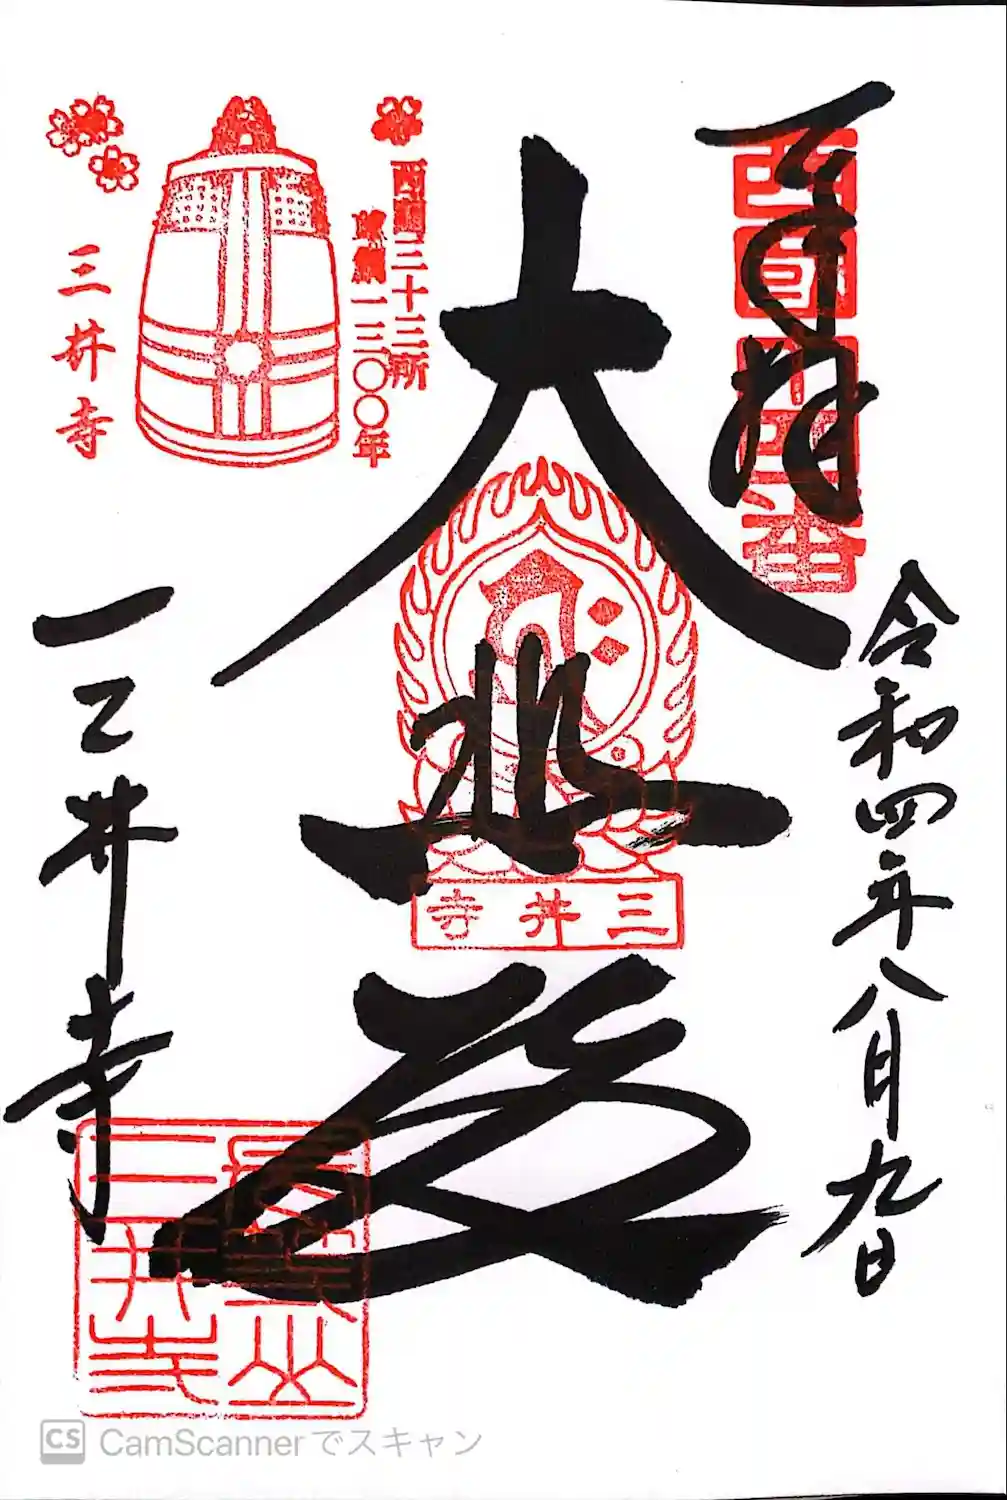 奉拝
西國十四番
令和四年八月九日
大悲殿
三井寺
西國三十三所
草創一三〇〇年
三井寺
三井寺
長等山
三井寺
CS CamScannerでスキャン